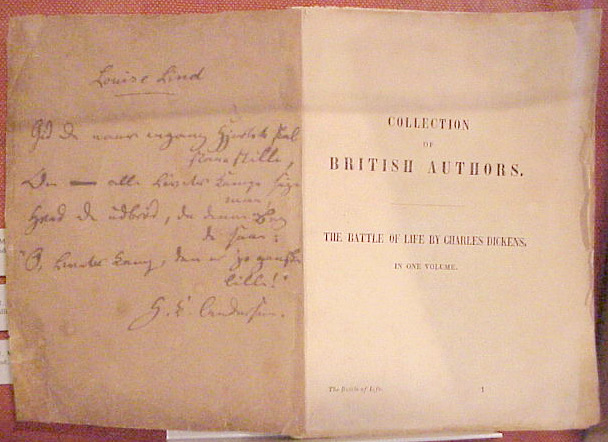 Louise Lind
Gid De naar engang Hjertet skal
staae stille,
Om — alle Livets Kampe sige
maa,
Hvad De udbrød, da denne Bog
De saae:
"O, Livets Kamp, den er jo ganske
lille!"
H. C. Andersen.
COLLECTION
OF
BRITISH AUTHORS.
THE BATTLE OF LIFE BY CHARLES DICKENS.
IN ONE VOLUME.
The Battle of Life. 1